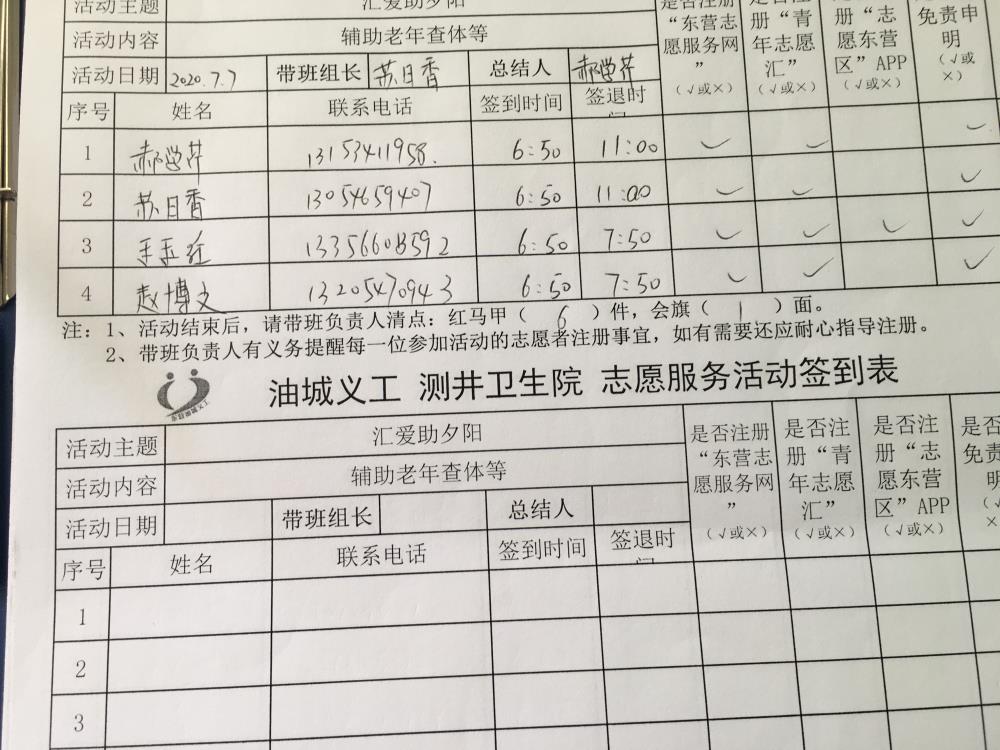 活动主题 汇爱助夕阳 是否注册“东营志愿服务网”（√或×） 是否注册“青年志愿汇”（√或×） 册“志愿东营区”APP（√或×） 免责申明（√或×）
活动内容 辅助老年查体等
活动日期 2020.7.7 带班组长 苏日香 总结人 郝学芹
序号 姓名 联系电话 签到时间 签退时间
1 郝学芹 13153411958. 6:50 11:00 ✓ ✓ ✓
2 苏日香 13054659407 6:50 11:00 ✓ ✓ ✓
3 13356608592 6:50 7:50 ✓ ✓ ✓ ✓
4 赵博文 13205470943 6:50 7:50 ✓ ✓ ✓
注：1、活动结束后，请带班负责人清点：红马甲（ 6 ）件，会旗（ 1 ）面。
2、带班负责人有义务提醒每一位参加活动的志愿者注册事宜，如有需要还应耐心指导注册。
油城义工 测井卫生院 志愿服务活动签到表
活动主题 汇爱助夕阳 是否注册“东营志愿服务网”（√或×） 是否注册“青年志愿汇”（√或×） 是否注册“志愿东营区”APP（√或×） 是否 免责 明（√ ×
活动内容 辅助老年查体等
活动日期 带班组长 总结人
序号 姓名 联系电话 签到时间 签退时间
1
2
3